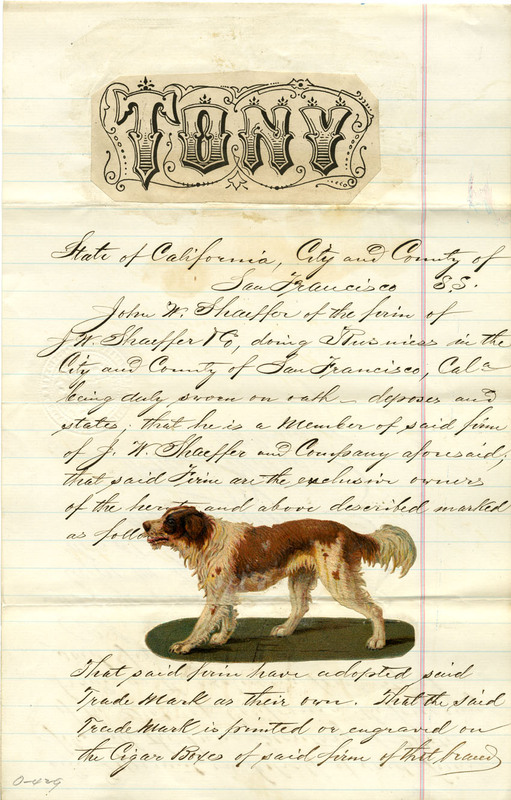 TONY
State of California, City and County of
San Francisco S.S.
John W. Shaeffer of the firm of
J W Shaeffer & Co, doing Business in the
City and County of San Francisco, Cala
being duly sworn on oath deposes and
states; that he is a Member of said firm
of J. W. Shaeffer and Company aforesaid;
that said Firm are the exclusive owners
of the and above described marked
as follo
That said firm have adopted said
Trade Mark as their own. That the said
Trade Mark is printed or engraved on
the Cigar Boxes of said firm of that brand
0-429